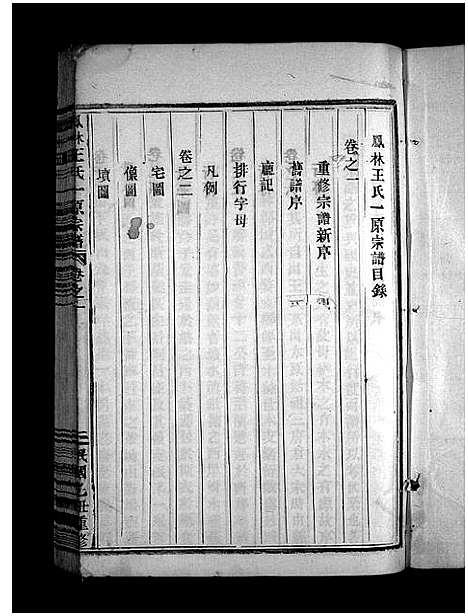 鳳林王氏一原宗譜目錄
卷之一
重修宗譜新序
舊譜序
廬記
排行字母
凡例
卷之二
宅圖
像圖
墳圖
鳳林王氏一原宗譜 卷之一
民國乙丑重修